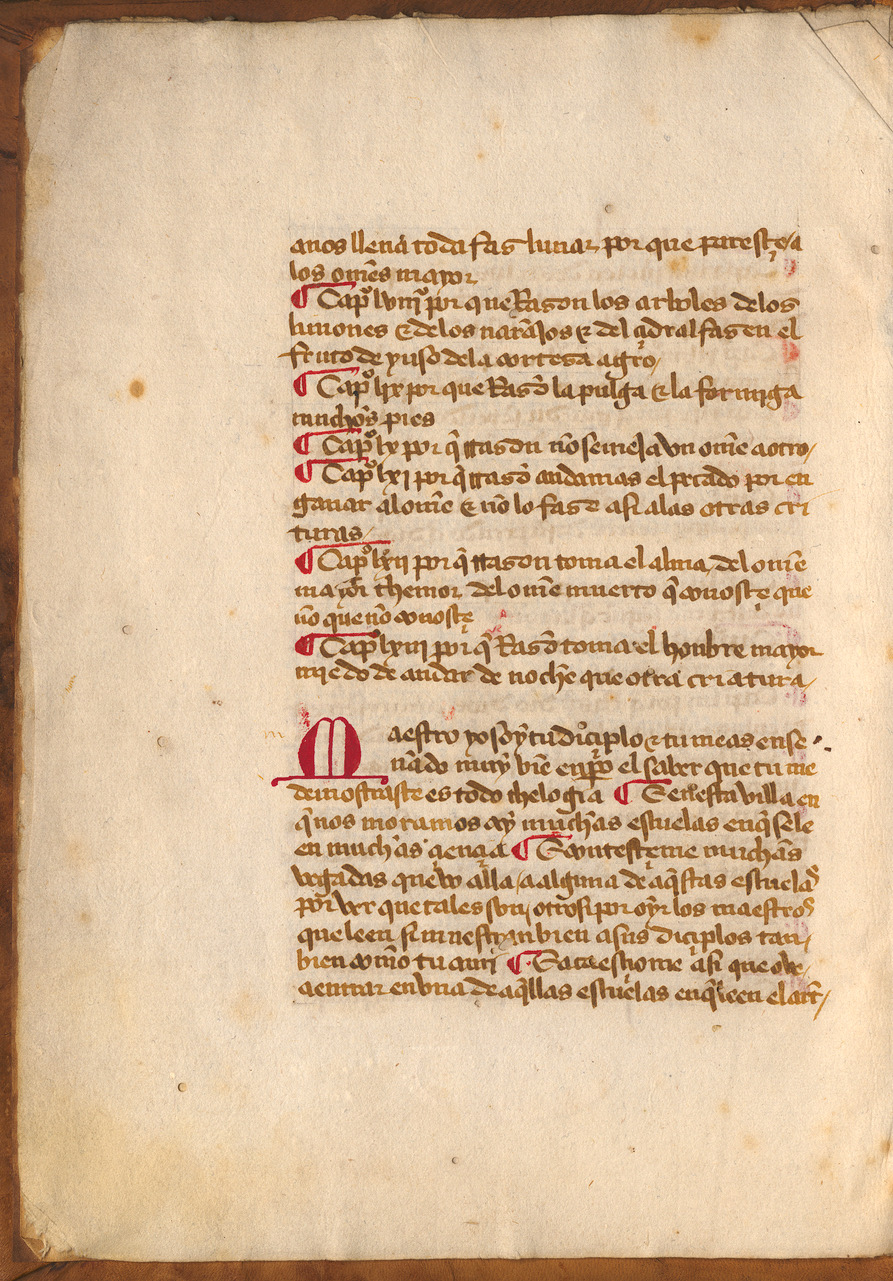 anos llena toda faz lunar por que paresçe a
los om̃es mayor
¶ Capº lviijº por que Razon los arboles delos
limones & delos narãjos & del çidral fazen el
fruto de yuso dela corteza agro
¶ Capº lix por que Razõ la pulga & la formiga
muchos pies
¶ Capº lx por q̃ rrazon nõ semeja vn om̃e a otro
¶ Capº lxi por q̃ rrazõ anda mas el pecado por en
gañar al om̃e & nõ lo faze asi alas otras cri
turas
¶ Capº lxii por q̃ rrazon toma el alma del om̃e
mayor themor del om̃e muerto q̃ conosçe que
nõ que nõ conosçe
¶ Capº lxiii por q̃ Razõ toma el honbre mayor
miedo de andar de noche que otra criatura
Maestro yo soy tu diçiplo & tu me as ense
ñado muy biẽ enpero el saber que tu me
demostraste es todo thelogia ¶ E en esta villa en
q̃ nos moramos ay muchas escuelas en q̃ se le
en muchas çiençias ¶ E contesçeme muchas
vegadas que vo alla a alguna de aq̃stas escuelas
por ver que tales son otrosi por oyr los maestros
que leen si muestran bien a sus diçiplos tan
bien como tu a mi ¶ E acaesçiome asi que ove
a entrar en vna de aq̃llas escuelas en q̃ leen el art̃